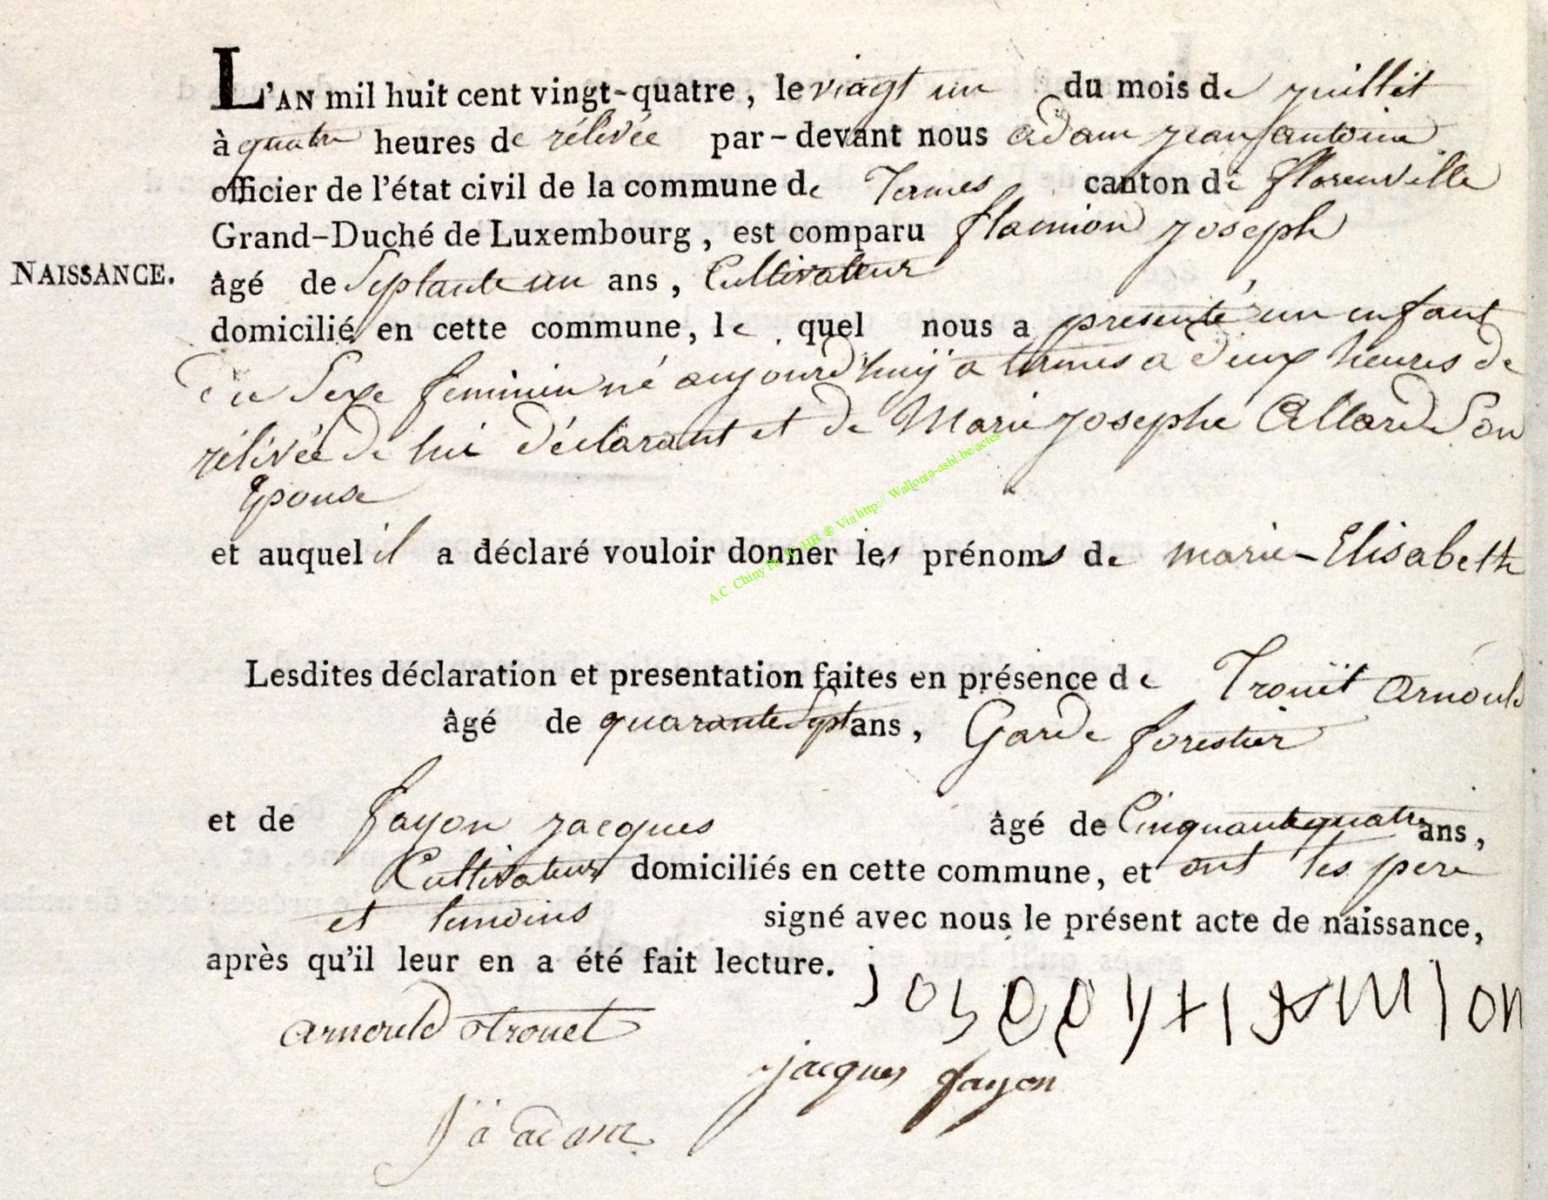 L'AN mil huit cent vingt-quatre, le vingt un du mois de juillet
à quatre heures de rélévée par-devant nous adam jean antoine
officier de l'état civil de la commune de Termes canton de florenville
Grand-Duché de Luxembourg, est comparu flamion joseph
NAISSANCE.
âgé de Septante un ans, Cultivateur
domicilié en cette commune, le quel nous a presenté un enfant
du Sexe feminin né aujourd'huy a termes a deux heures de
rélévée de lui déclarant et de Marie josephe Allard Son
Epouse
et auquel il a déclaré vouloir donner les prénoms de marie-Elisabeth
A.C. Chiny Via http:// Wallonia-asbl.be/actes
Lesdites déclaration et presentation faites en présence de Trouët arnould
âgé de quarante Sept ans, Garde forestier
et de fayon jacques âgé de Cinquante quatre ans,
Cultivateur domiciliés en cette commune, et ont les pere
et temoins signé avec nous le présent acte de naissance,
après qu'il leur en a été fait lecture.
joseph flamion
arnould trouet
jacques fayon
j a adam